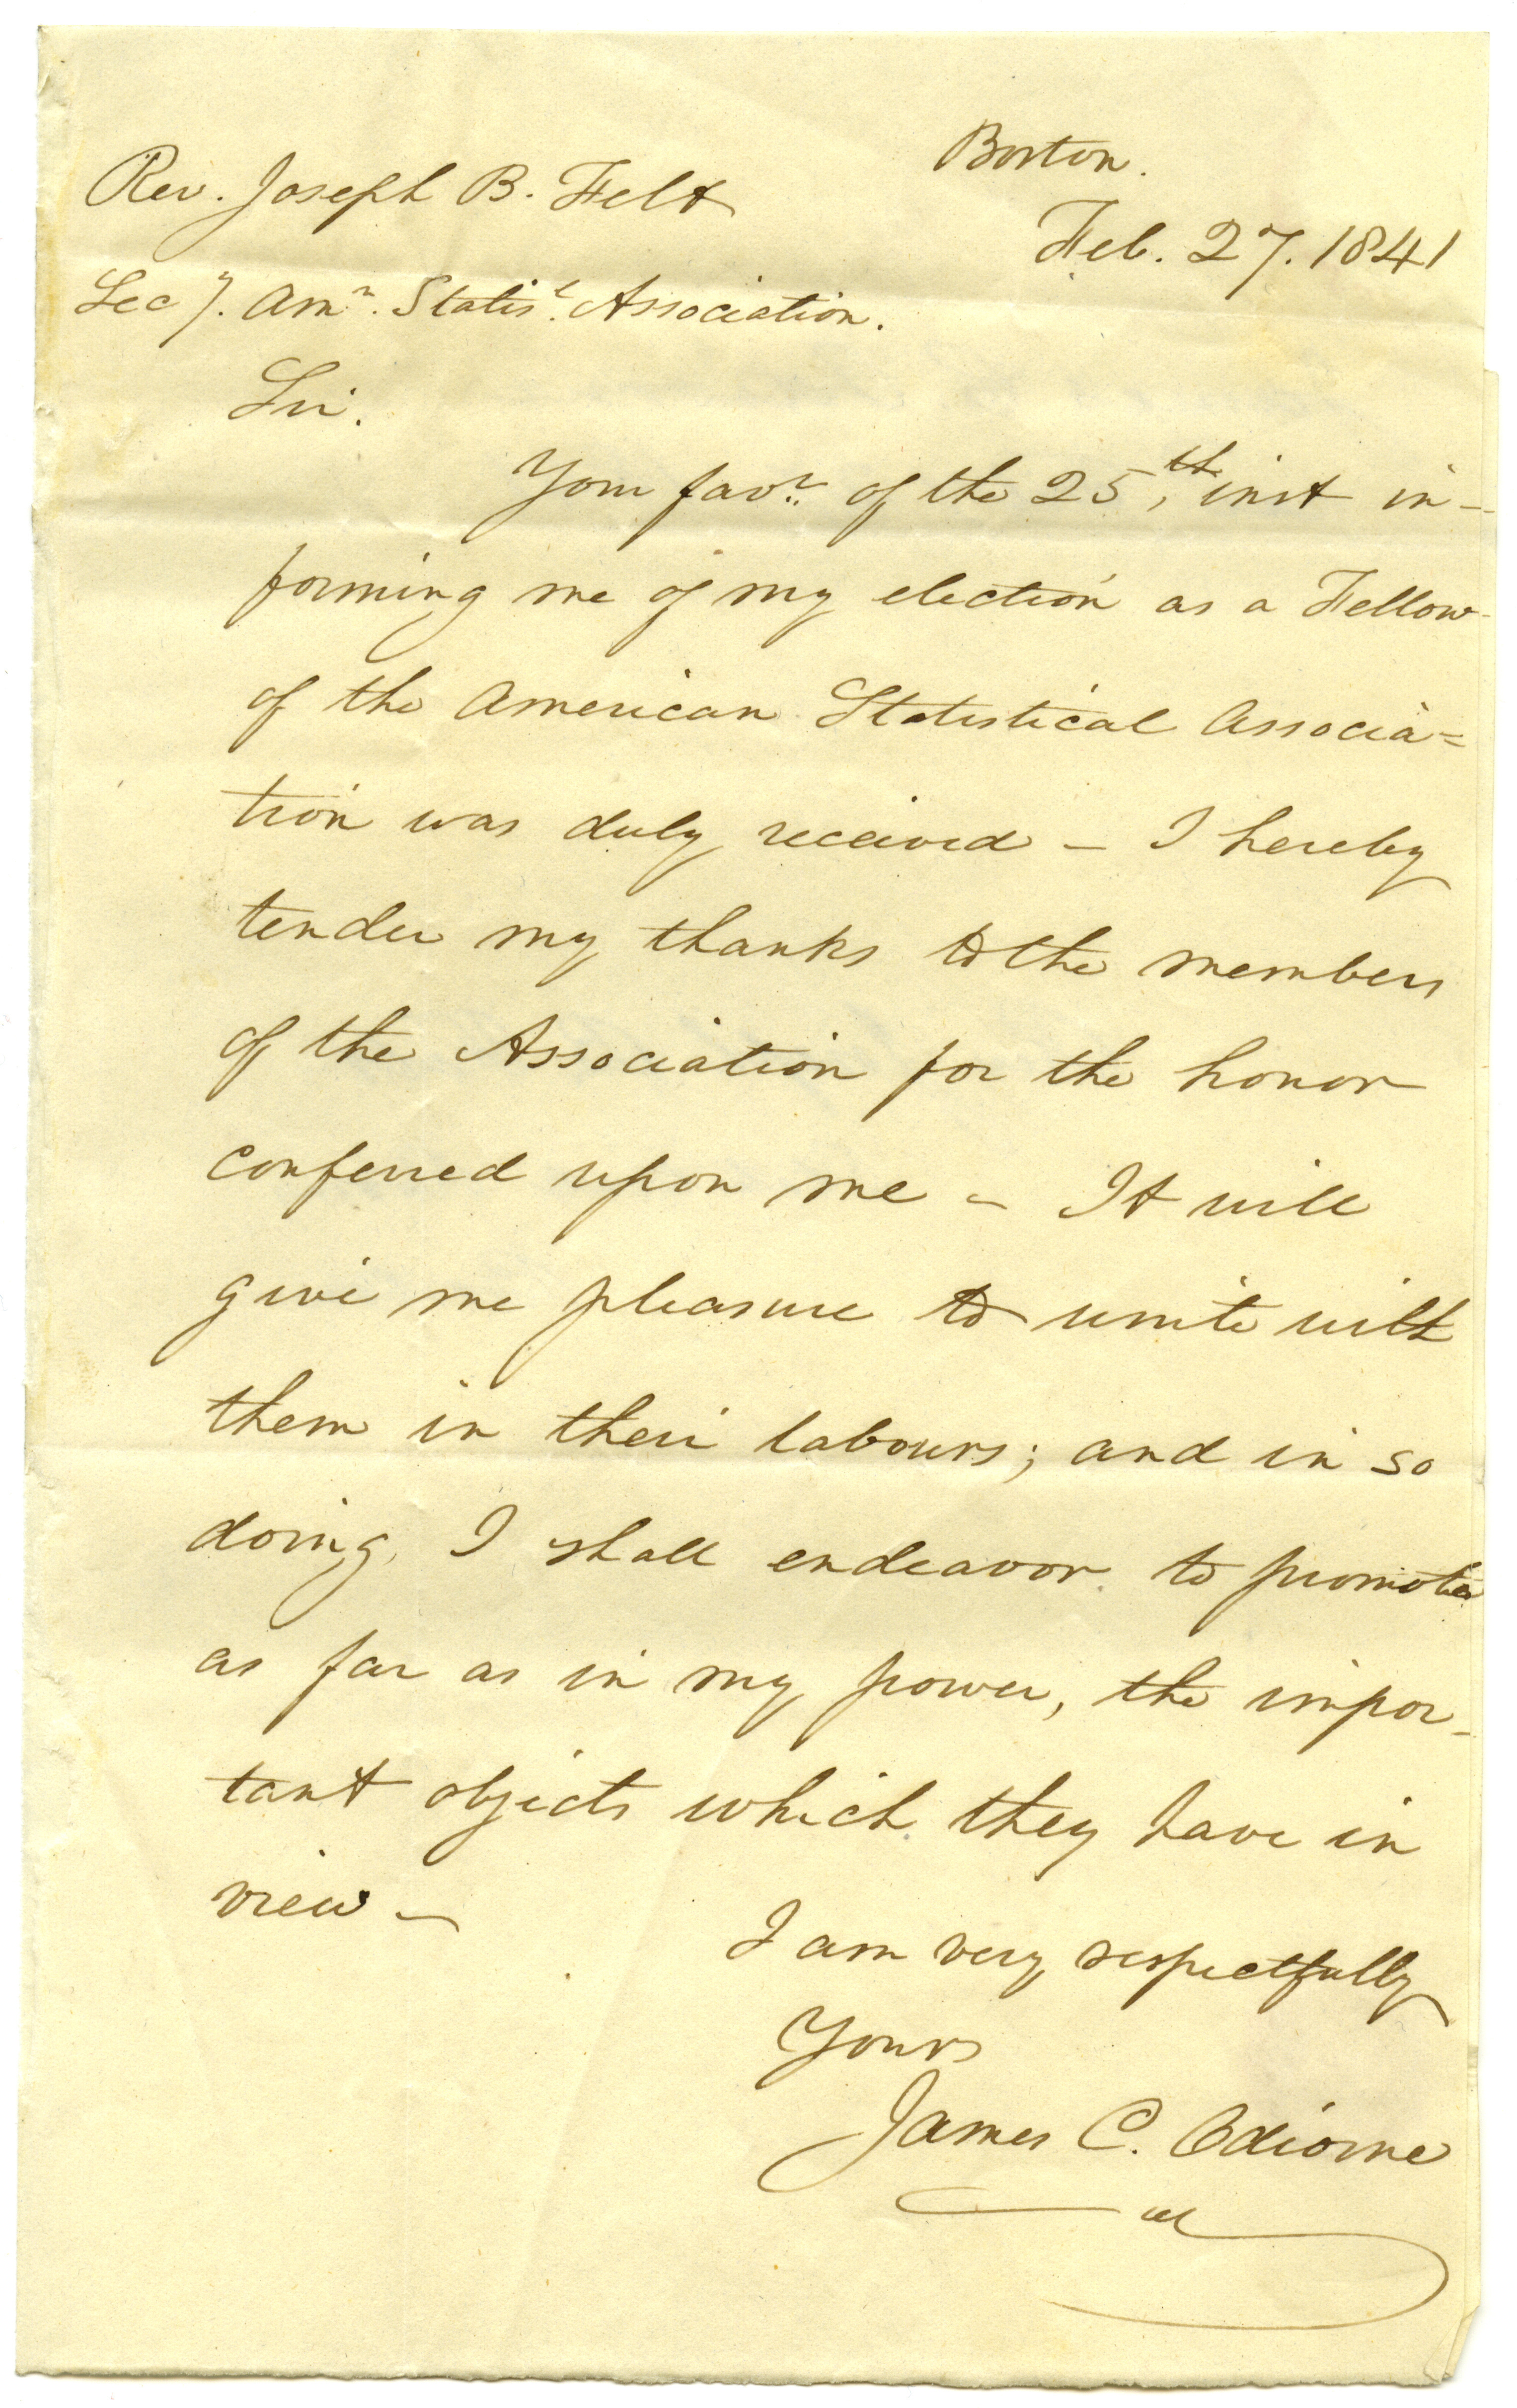 Boston.
Rev. Joseph B. Felt
Feb. 27. 1841
Sec y. Amn. Statisl. Association.
Sir.
Your favr. of the 25th, inst in-
forming me of my election as a Fellow
of the American Statistical Associa=
tion was duly received - I hereby
tender my thanks to the members
of the Association for the honor
conferred upon me - It will
give me pleasure to unite with
them in their labours; and in so
doing, I shall endeavor to promote
as far as in my power, the impor-
tant objects which they have in
view -
I am very respectfully
Yours
James C. Odiorne